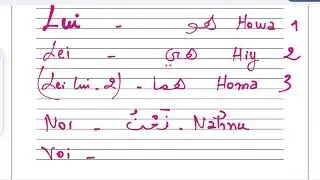 Lui - هو Howa 1
Lei - هي Hiy 2
(Lei lui. 2) - هما Homa 3
Noi - نَحْنُ. Nahnu
Voi -